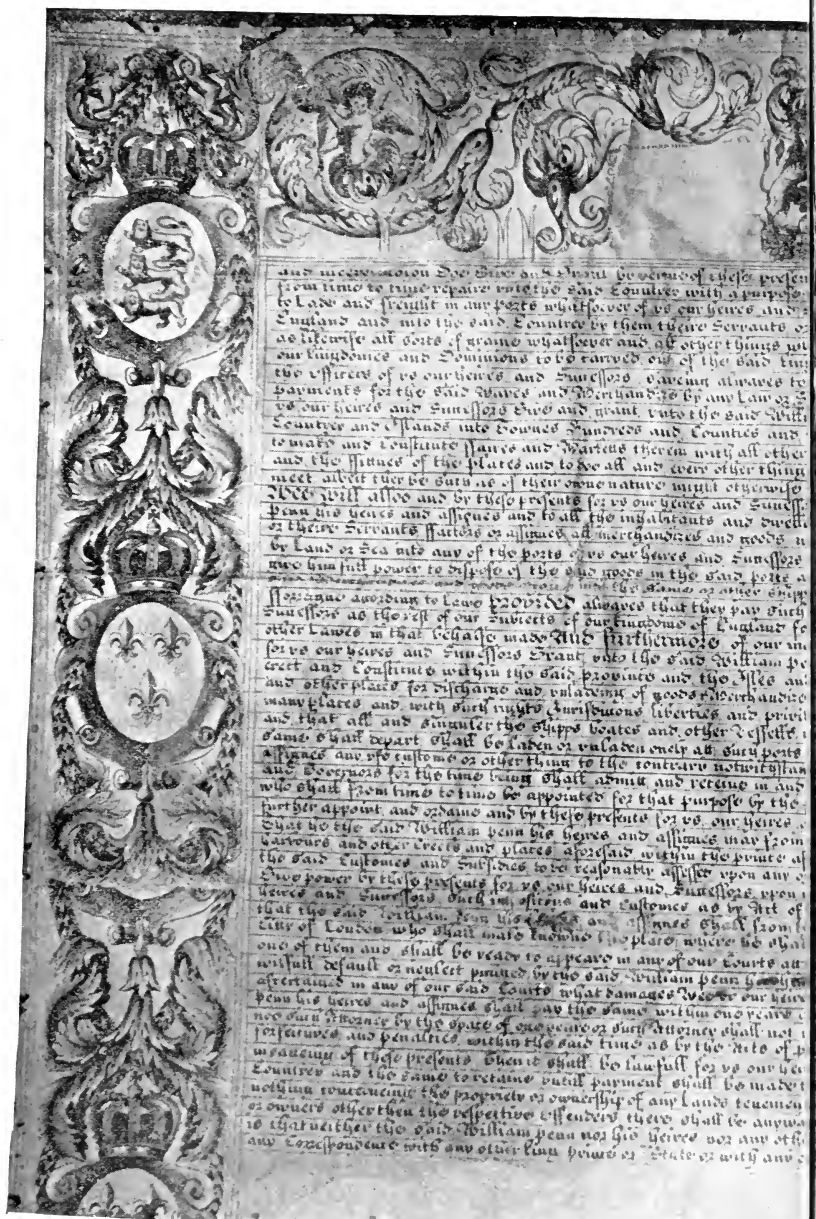 and meere motion Doe Give and Grant by vertue of these presen
from time to time repaire unto the said Countrey with a purpose
to Lade and freight in any ports whatsoever of us our heires and
England and into the said Countrey by them theire Servants or
as likewise all sorts of graine whatsoever and all other things
our Kingdomes and Dominions to be carryed out of the said
the Officers of us our heires and Successors payeing alwayes
payments for the said Wares and Merchandizes by any Law or
us our heires and Successors Give and grant unto the said Willi
Countrey and Islands into Townes Hundreds and Counties and
to make and Constitute ffaires and Marketts therein with all other
and the of the places and to doe all and every other thing
meet albeit they be such as of their owne nature might otherwise
Wee Will alsoe and by these presents for us our heires and Success
Penn his heires and assignes and to all the inhabitants and dwell
or theire Servants ffactors or assignes all merchandizes and goods
by Land or Sea into any of the ports of us our heires and Successors
give him full power to dispose of the said goods in the said ports a
and goods with the same or other shipp
according to Lawe Provided alwayes that they pay such
Successors as the rest of our Subiects of our Kingdome of England
other Lawes in that behalfe made And Furthermore of our
for us our heires and Successors Grant unto the said William Pe
erect and Constitute within the said province and the Isles an
and other places for discharge and unladeing of goods & Merchandize
many places and with such rights Jurisdiccons liberties and privi
and that all and singuler the Shipps boates and other Vessells
same shall depart shall be laden or unladen onely att such ports
assignes any use custome or other thing to the contrary notwithstan
and Governors for the time being shall admitt and receive in and
who shall from time to time be appointed for that purpose by the
further appoint and ordaine and by these presents for us our heires
That he the said William Penn his heires and assignes may from
harbours and other Creeks and places aforesaid within the
the said Customes and Subsidies to be reasonably assessed upon any
Give power by these presents for us our heires and Successors upon
heires and Successors Such imposicons and Customes as by Act of
that the said William Penn his heires and assignes shall from
City of London who shall make knowne the place where he shall
one of them and shall be ready to appeare in any of our Courts att
wilfull default or neglect by the said William Penn
ascertained in any of our said Courts what damages Wee or our heires
Penn his heires and assignes shall pay the same within one yeare
noe such Attorney by the space of one yeare or such Attorney shall not
forfeitures and penalties within the said time as by the Acts of
meaneing of these presents then it shall be lawfull for us our hei
Countrey and the same to retaine untill payment shall be made
nothing concerneing the propriety or ownership of any Lands tenemen
or owners other then the respective offenders there shall be anyway
is that neither the said William Penn nor his heires nor any oth
any Correspondence with any other King prince or State or with any